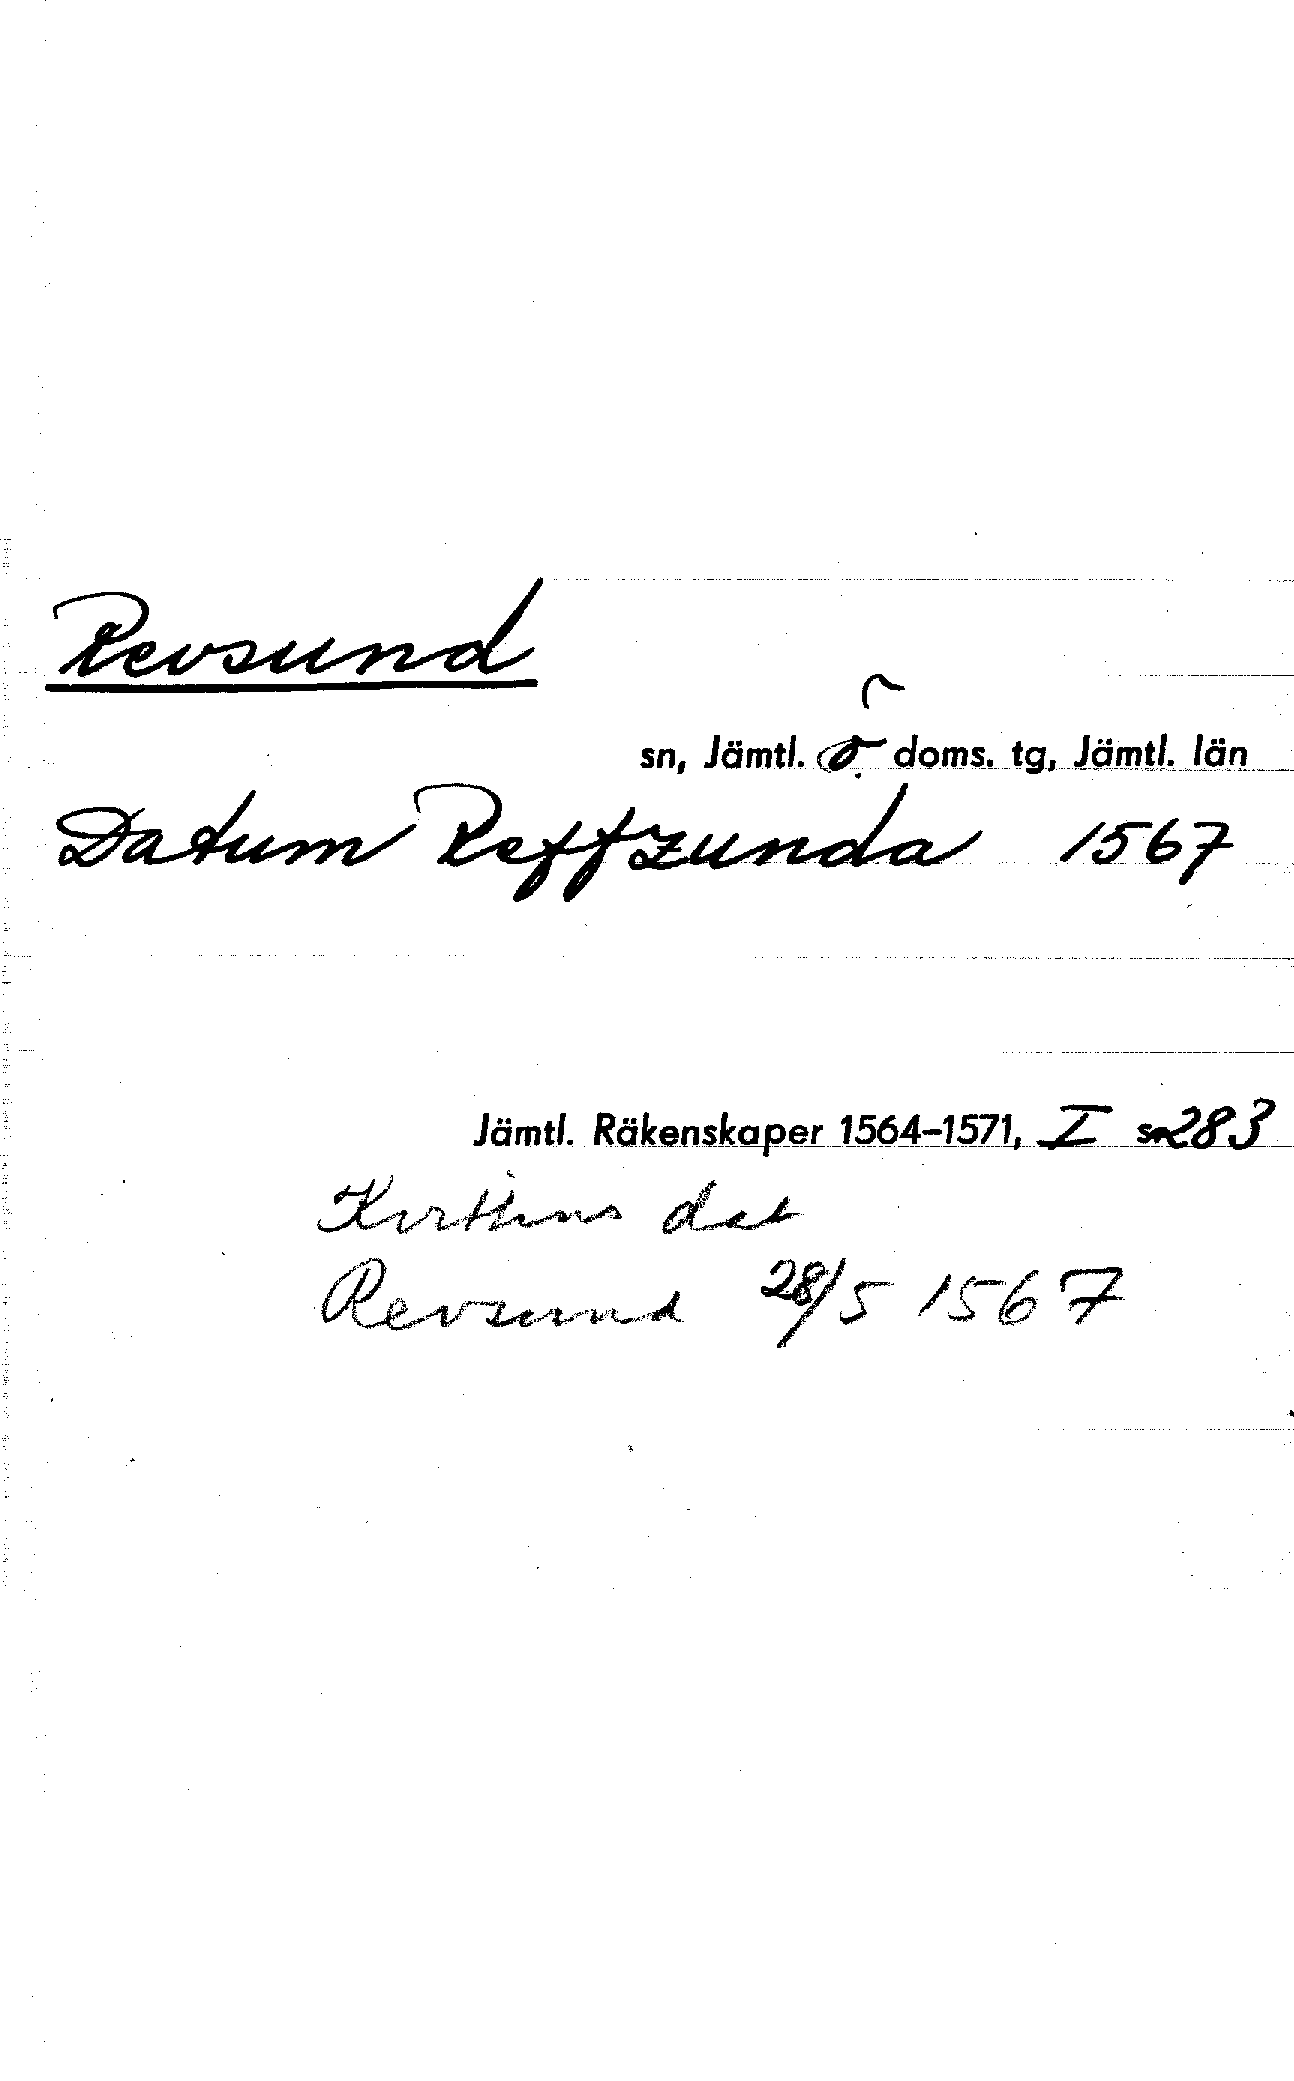 Revsund
sn, Jämtl. ö doms. tg, Jämtl. län
Datum Reffzunda 1567
Jämtl. Räkenskaper 1564-1571, I s 283
dat
Revsund 28/5 1567